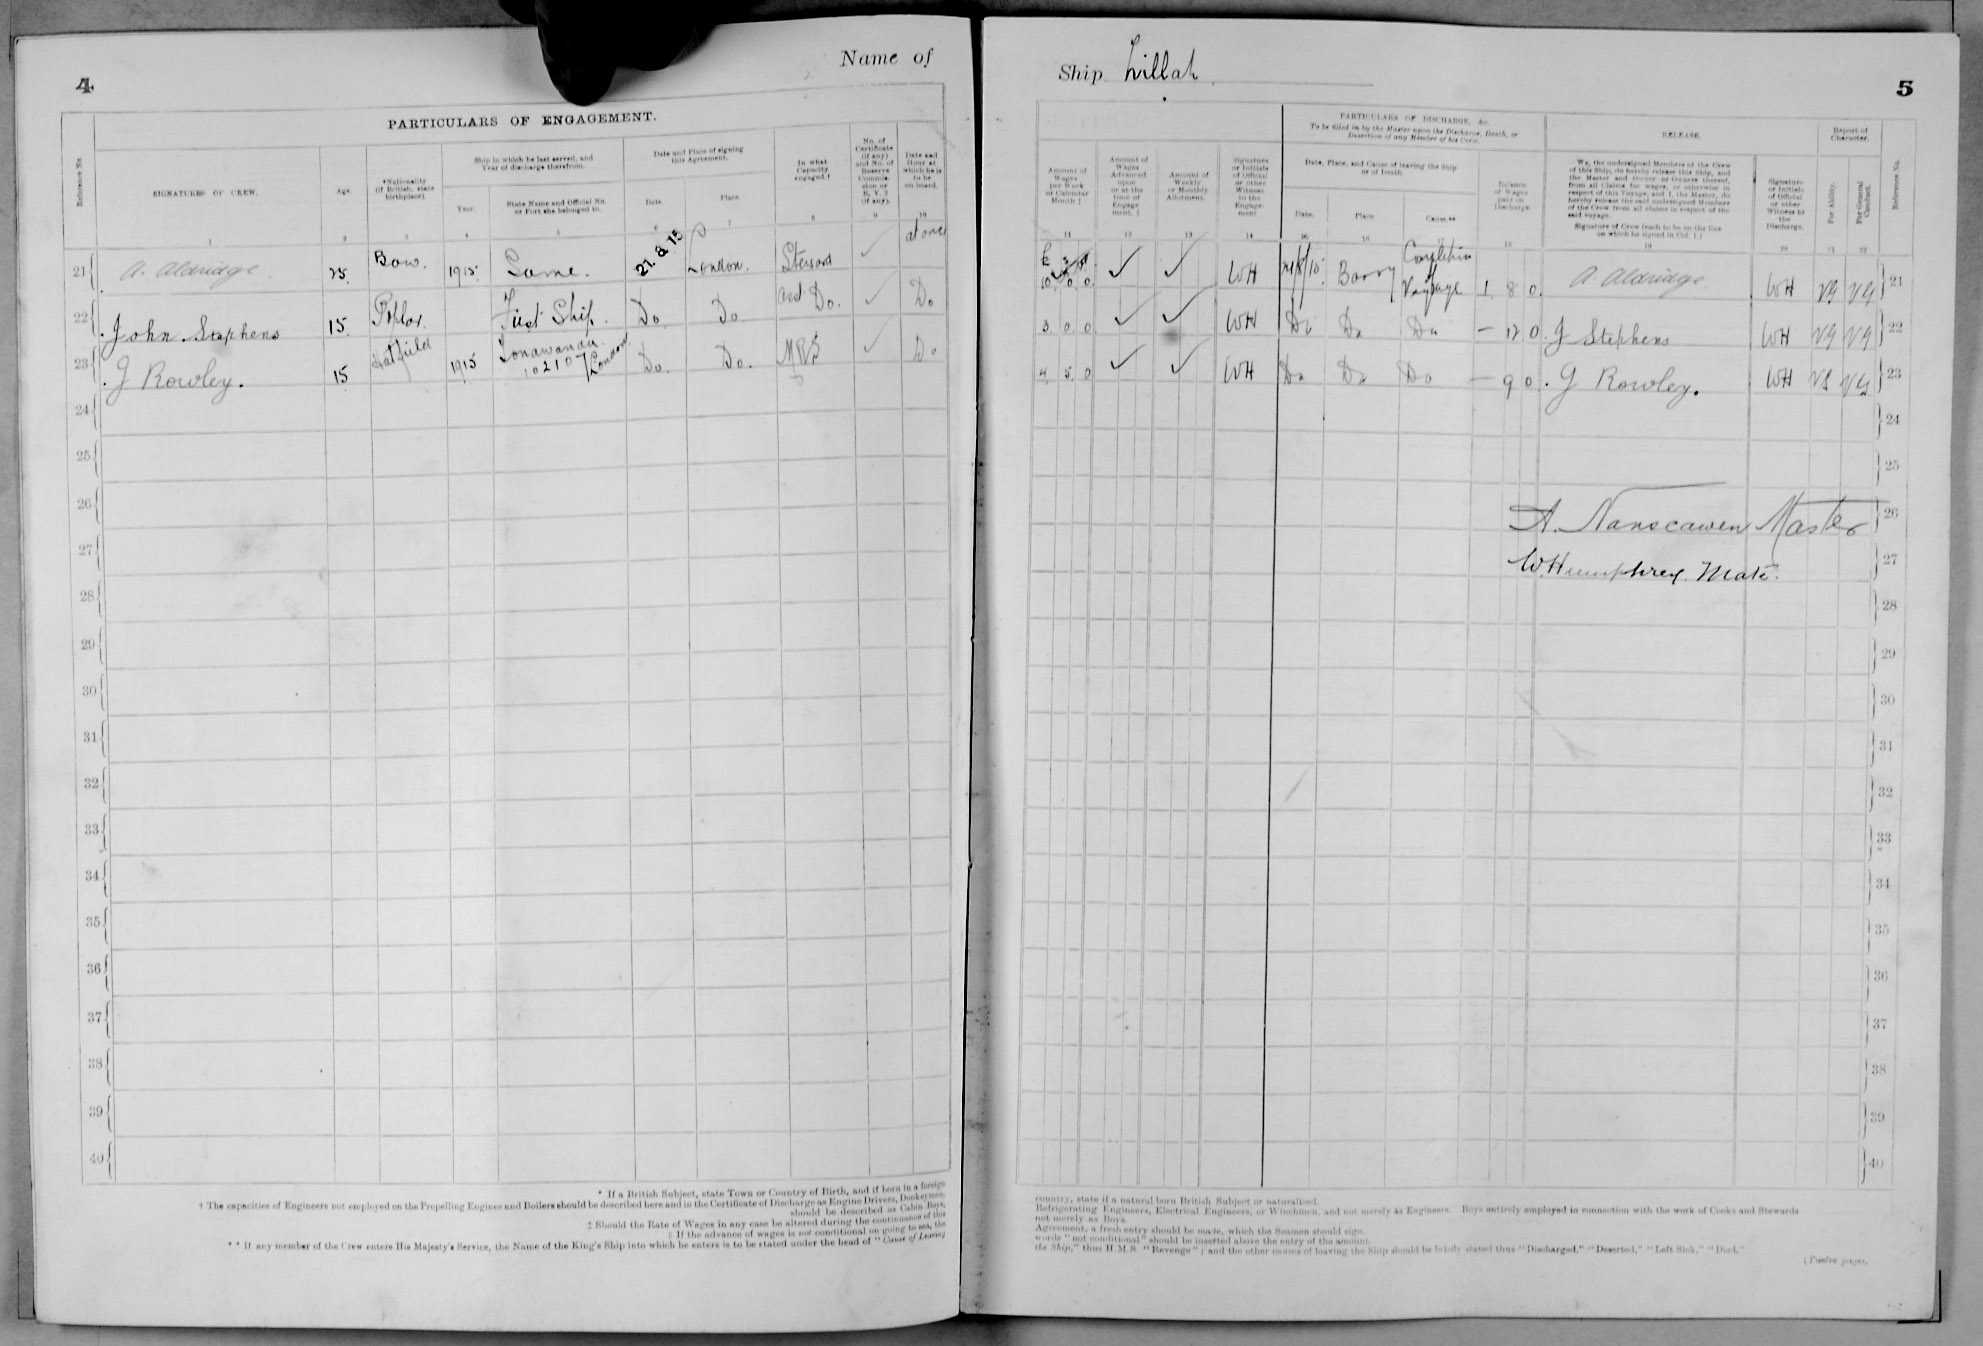 4
Name of
PARTICULARS OF ENGAGEMENT.
Reference No.
SIGNATURES OF CREW.
Age.
*Nationality (If British, state birthplace).
Ship in which he last served, and Year of discharge therefrom.
Year.
State Name and Official No. or Port she belonged to.
Date and Place of signing this Agreement.
Date.
Place.
In what Capacity engaged.†
No. of Certificate (if any) and No. of Reserve Commission or R. V. 2 (if any).
Date and Hour at which he is to be on board.
1 2 3 4 5 6 7 8 9 10
21 A. Aldridge. 25 Bow. 1915 Same. 21.8.15 London. Steward above
22 John Stephens 15 Poplar. First Ship. Do. Do. asst. Do. Do
23 J Rowley. 15 Hatfield 1915 Tonawanda. 102107 London Do. Do. Do
24
25
26
27
28
29
30
31
32
33
34
35
36
37
38
39
40
* If a British Subject, state Town or Country of Birth, and if born in a foreign
† The capacities of Engineers not employed on the Propelling Engines and Boilers should be described here and in the Certificate of Discharge as Engine Drivers, Donkeymen,
should be described as Cabin Boys,
‡ Should the Rate of Wages in any case be altered during the continuance of this
‡ If the advance of wages is not conditional on going to sea, the
** If any member of the Crew enters His Majesty's Service, the Name of the King's Ship into which he enters is to be stated under the head of "Cause of Leaving
Ship Lillah
5
PARTICULARS OF DISCHARGE, &c.
To be filled in by the Master upon the Discharge, Death, or Desertion of any Member of his Crew.
RELEASE.
Report of Character.
Amount of Wages per Week or Calendar Month ‡
Amount of Wages Advanced upon or at the time of Engagement. ‡
Amount of Weekly or Monthly Allotment.
Signature or Initials of Official or other Witness to the Engagement
Date, Place, and Cause of leaving the Ship or of Death.
Date.
Place
Cause **
Balance of Wages paid on Discharge.
We, the undersigned Members of the Crew
of this Ship, do hereby release this Ship, and
the Master and Owner or Owners thereof,
from all Claims for wages, or otherwise in
respect of this Voyage, and I, the Master, do
hereby release the said undersigned Members
of the Crew from all claims in respect of the
said voyage.
Signature of Crew (each to be on the line on which he signed in Col. 1.)
Signature or Initials of Official or other Witness to the Discharge.
For Ability.
For General Conduct.
Reference No.
11 12 13 14 16 18 19 20 21 22
10 0 0 WH Barry Completion of Voyage 1 8 0 A Aldridge WH VG VG 21
3 0 0 WH Do Do Do – 12 0 J Stephens WH VG VG 22
4 5 0 WH Do Do Do – 9 0 J Rowley. WH VG VG 23
24
25
A. Nanscawen Master 26
W. Humphrey. Mate. 27
28
29
30
31
32
33
34
35
36
37
38
39
40
country, state if a natural born British Subject or naturalized.
Refrigerating Engineers, Electrical Engineers, or Winchmen, and not merely as Engineers. Boys entirely employed in connection with the work of Cooks and Stewards
not merely as Boys.
Agreement, a fresh entry should be made, which the Seamen should sign.
words "not conditional" should be inserted above the entry of the amount.
the Ship," thus H.M.S. "Revenge"; and the other causes of leaving the Ship should be briefly stated thus "Discharged," "Deserted," "Left Sick," "Died."
[Twelve pages.